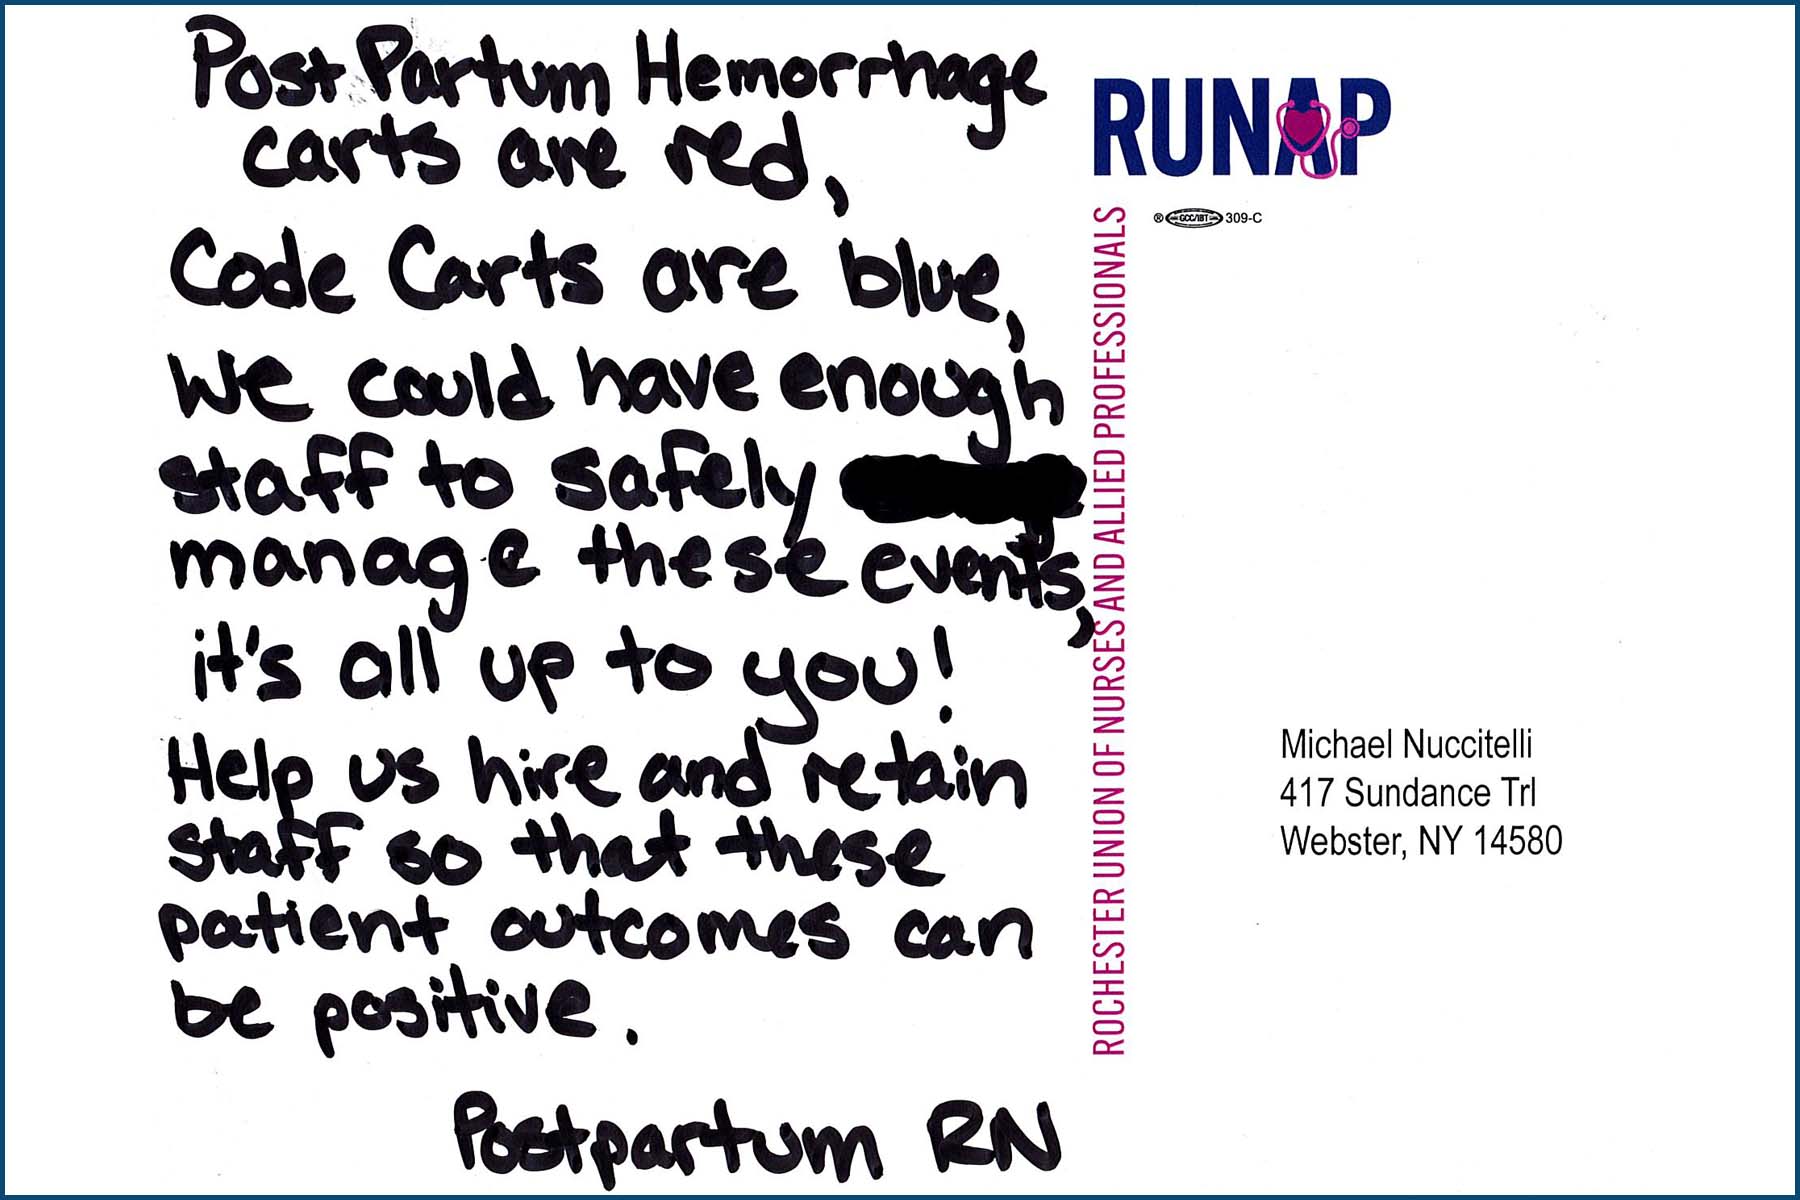 Post Partum Hemorrhage
carts are red,
Code Carts are blue,
We could have enough
staff to safely
manage these events,
it's all up to you!
Help us hire and retain
staff so that these
patient outcomes can
be positive.
Postpartum RN
RUNAP
® GCC/IBT 309-C
ROCHESTER UNION OF NURSES AND ALLIED PROFESSIONALS
Michael Nuccitelli
417 Sundance Trl
Webster, NY 14580